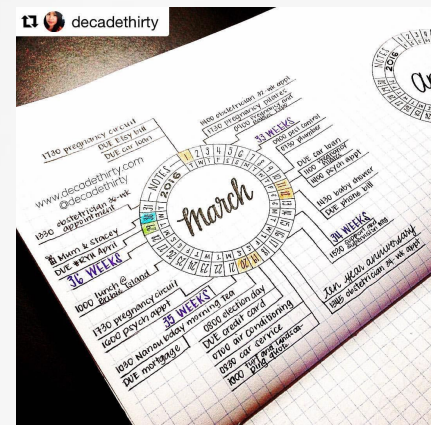 decadethirty
1730 pregnancy circuit
DUE Etsy bill
DUE car loan
www.decadethirty.com
@decadethirty
1330 obstetrician 36-wk
appointment
Mum & Stacey
April
36 WEEKS
1000 lunch @
Bribie Island
1730 pregnancy circuit
1600 psych appt
35 WEEKS
1030 Nanou bday morning tea
DUE mortgage
0800 election day
DUE credit card
0700 air conditioning
0830 car service
1000 turf and landsca-
ping quote
1400 obstetrician 32-wk appt
1730 pregnancy pilates
33 WEEKS
pest control
0730 plumber
DUE car loan
1100 pregnancy
pilates
1600 psych appt
1430 baby shower
DUE phone bill
34 WEEKS
ten year anniversary
1345 obstetrician 34-wk appt
NOTES
2016
March
NOTES
2016